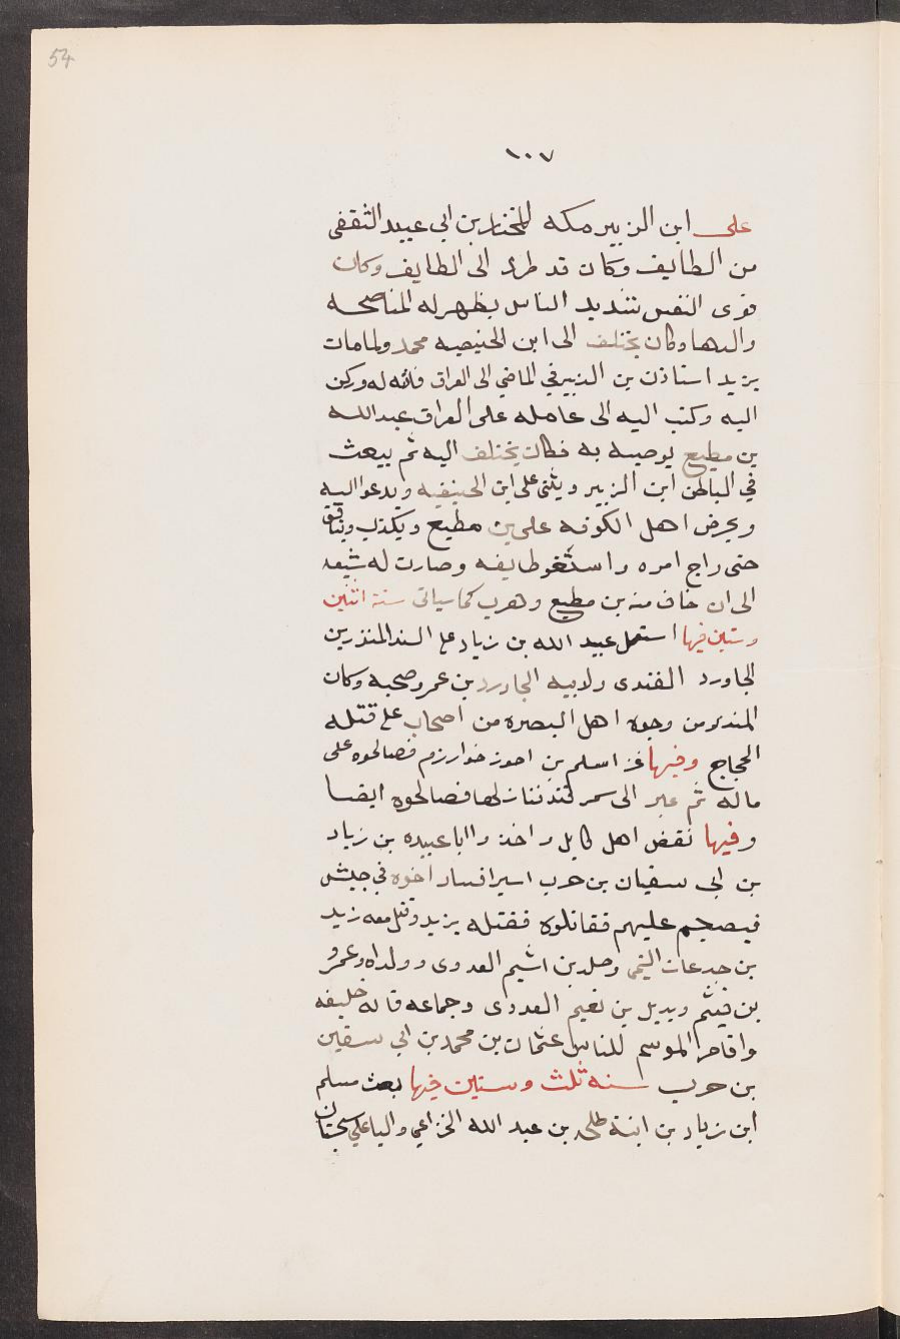 54
١٠٧
على ابن الزبير مكه المختار بن ابى عبيد الثقفى
من الطايف وكان قد طرد الى الطايف وكان
قوى النفس شديد الناس يظهر له المناصحه
وكان يختلف الى ابن الحنيفيه محمد ولما مات
يزيد استاذن بن الزبير في الماضي الى العراق فاذن له وركن
اليه وكتب اليه الى عامله على العراق عبد الله
بن مطيع يوصيه به فكان يختلف اليه ثم يبعث
في الباطن ابن الزبير ويثنى على ابن الحنيفيه ويدعو اليه
ويحرض اهل الكوفه على بن مطيع ويكذب وينافق
حتى راج امره واستغو طايفه وصارت له شيعه
الى ان خاف منه بن مطيع وهرب كما سياتى سنة اثنين
وستين فيها استعمل عبيد الله بن زياد على السند المنذر بن
الجاورد الفندى ولابيه الجاورد بن عمرو صحبه وكان
المنذر من وجوه اهل البصره من اصحاب على قتله
الحجاج وفيها غز اسلم بن احوز خوارزم فصالحوه على
ماله ثم عبر الى سمرقند فنازلها فصالحوه ايضا
وفيها نقض اهل كابل واخذ واابا عبيده بن زياد
بن ابى سفيان بن حرب اسيرا فسار اخوه في جيش
فيصحم عليهم فقاتلوه فقتله يزيد وقتل معه زيد
بن جدعان التيمى وصله بن اشيم العدوى وولداه وعمرو
بن قيثم وبديل بن نعيم العدوى وجماعه قاله خليفه
واقام الموسم للناس عثمان بن محمد بن ابى سفين
بن حرب سنه ثلث وستين فيها بعث مسلم
ابن زياد بن ابنة طلحه بن عبد الله الخزاعي واليا على سجستان